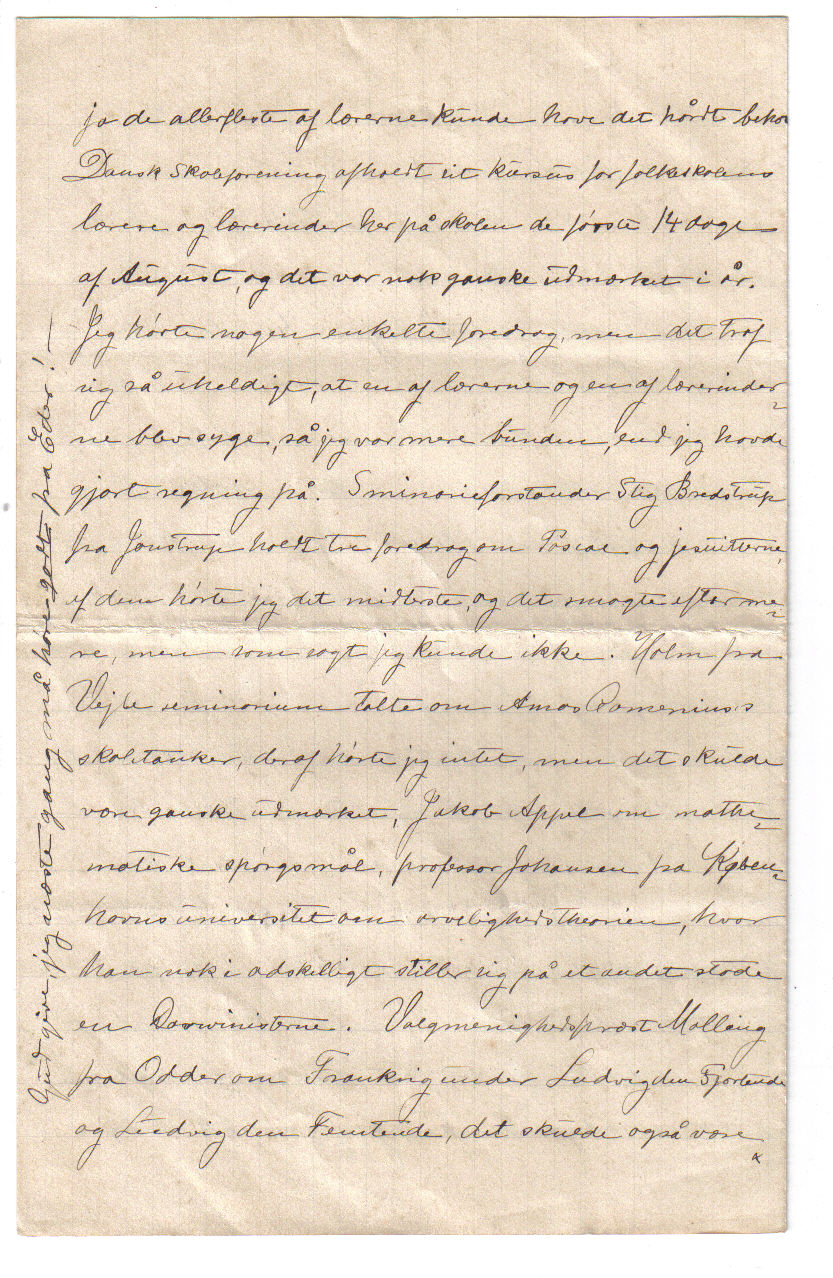 ja de allerfleste af lærerne kunde have det hårdt behov
Dansk Skoleforening afholdt sit kursus for folkeskolens
lærere og lærerinder her på skolen de første 14 dage
af August, og det var nok ganske udmærket i år.
Jeg hørte nogen enkelte foredrag, men det traf
sig så uheldigt, at en af lærerne og en af lærerinder-
ne blev syge, så jeg var mere bunden, end jeg havde
gjort regning på. Sminarieforstander Stig Bredstrup
fra Jonstrup holdt tre foredrag om Pascal og jesuitterne,
af dem hørte jeg det midterste, og det smagte efter me-
re, men som sagt jeg kunde ikke. Holm fra
Vejle seminarium talte om Amos Comenius's
skoletanker, deraf hørte jeg intet, men det skulde
være ganske udmærket, Jakob Appel om mathe-
matiske spørgsmål, professor Johansen fra Køben-
havns universitet om arvelighedstheorien, hvor
han nok i adskilligt stiller sig på et andet stade
en Darwinisterne. Valgmenighedspræst Malling
fra Odder om Frankrig under Ludvig den Fjortende
og Ludvig den Femtende, det skulde også være
Gud give, jeg næste gang må høre godt fra Eder! —